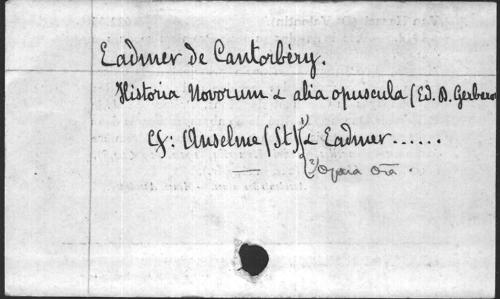 Eadmer de Cantorbéry.
Historia Novorum & alia opuscula (Ed. D. Gerberon
Cf: Anselme (St) 1) & Eadmer......
2) Opera oia